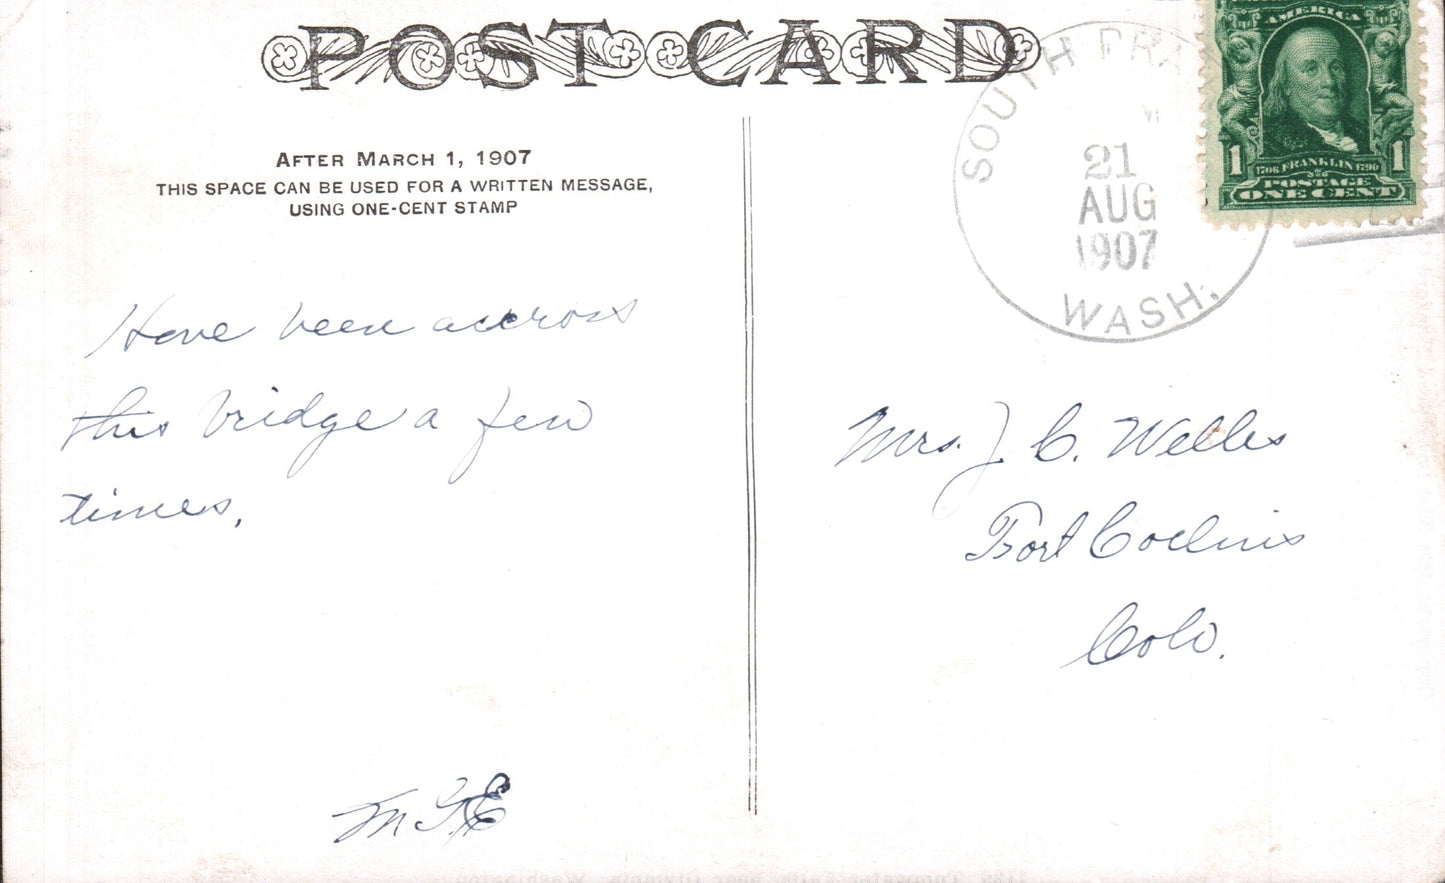 POST CARD
AFTER MARCH 1, 1907
THIS SPACE CAN BE USED FOR A WRITTEN MESSAGE,
USING ONE-CENT STAMP
Have been accross
this bridge a few
times.
SOUTH
21
AUG
1907
WASH.
AMERICA
1 1706 FRANKLIN 1790 1
POSTAGE
ONE CENT
Mrs. J. C. Welles
Fort Collins
Colo.